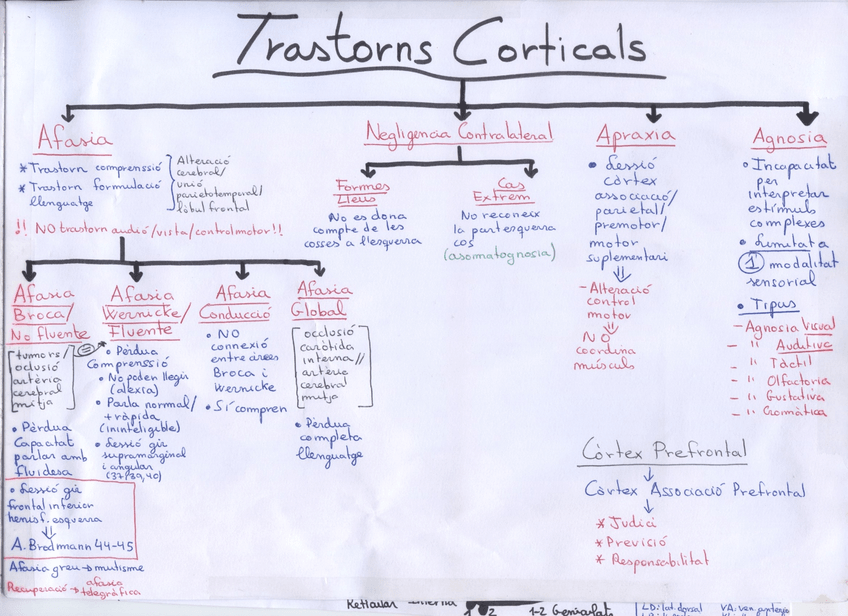 Trastorns Corticals
Afasia
* Trastorn comprenssió
* Trastorn formulació
llenguatge
Alteració
cerebral/
unió
parietotemporal/
lòbul frontal
!! NO trastorn audió/vista/control motor!!
Afasia
Broca/
No fluente
[tumors/
oclusió
artèria
cerebral
mitja]
• Pèrdua
Capacitat
parlar amb
fluidesa
• Lessió gir
frontal inferior
hemisf. esquerra
⇓
A. Brodmann 44-45
Afasia greu → mutisme
Recuperació → afasia
telegràfica
Afasia
Wernicke/
Fluente
=
• Pèrdua
Comprenssió
• No poden llegir
(alexia)
• Parla normal/
+ ràpida
(inintel·ligible)
• Lessió gir
supramarginal
i angular
(37,39,40)
Afasia
Conducció
• NO
connexió
entre àrees
Broca i
Wernicke
• Sí compren
Afasia
Global
[occlusió
caròtida
interna//
artèria
cerebral
mitja]
• Pèrdua
completa
llenguatge
Negligencia Contralateral
Formes
Lleus
No es dona
compte de les
cosses a l'esquerra
Cas
Extrem
No reconeix
la part esquerra
cos
(asomatognosia)
Apraxia
• Lessió
còrtex
associació/
parietal/
premotor/
motor
suplementari
⇓
- Alteració
control
motor
⇓
NO
coordina
músculs
Agnosia
• Incapacitat
per
interpretar
estímuls
complexes
• Limitat a
1 modalitat
sensorial
• Tipus
- Agnosia Visual
- " Auditiva
- " Tàctil
- " Olfactoria
- " Gustativa
- " Cromàtica
Còrtex Prefrontal
↓
Còrtex Associació Prefrontal
↓
* Judici
* Previció
* Responsabilitat
Reticular interna
1-2 Geniculat
LD: lat. dorsal
VA: ven. anterior